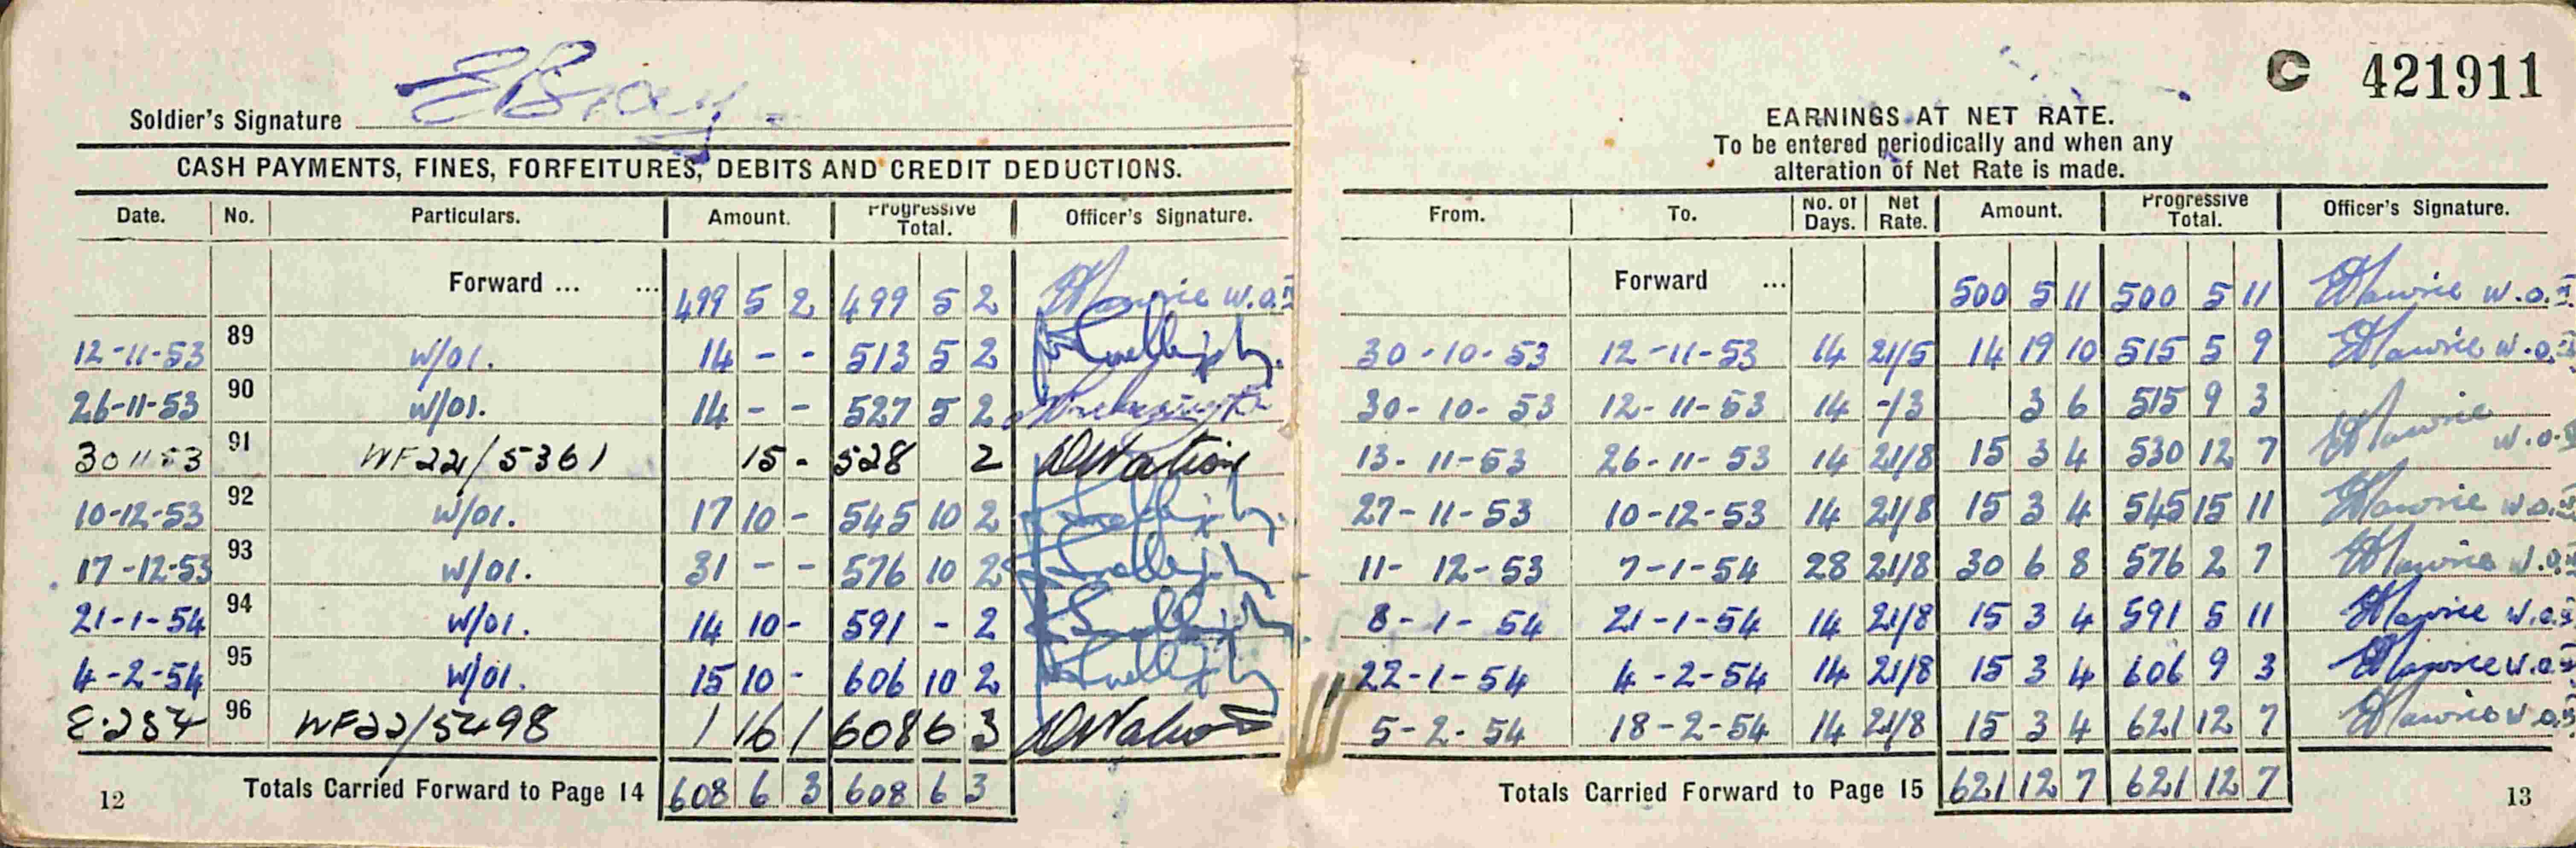 Soldier's Signature EBray
CASH PAYMENTS, FINES, FORFEITURES, DEBITS AND CREDIT DEDUCTIONS.
Date. No. Particulars. Amount. Progressive Total. Officer's Signature.
Forward ... ... 499 5 2 499 5 2 W.O.II
12-11-53 89 W/01. 14 - - 513 5 2
26-11-53 90 W/01. 14 - - 527 5 2
30 11 53 91 WF221/5361 15 - 528 2 Watson
10-12-53 92 W/01. 17 10 - 545 10 2
17-12-53 93 W/01. 31 - - 576 10 2
21-1-54 94 W/01. 14 10 - 591 - 2
4-2-54 95 W/01. 15 10 - 606 10 2
8.2 54 96 WF22/5498 1 16 1 608 6 3 Watson
Totals Carried Forward to Page 14 608 6 3 608 6 3
12
C 421911
EARNINGS AT NET RATE.
To be entered periodically and when any
alteration of Net Rate is made.
From. To. No. of Days. Net Rate. Amount. Progressive Total. Officer's Signature.
Forward ... 500 5 11 500 5 11 W.O.II
30-10-53 12-11-53 14 21/5 14 19 10 515 5 9 W.O.II
30-10-53 12-11-53 14 -/3 3 6 515 9 3
13-11-53 26-11-53 14 21/8 15 3 4 530 12 7 W.O.II
27-11-53 10-12-53 14 21/8 15 3 4 545 15 11 W.O.II
11-12-53 7-1-54 28 21/8 30 6 8 576 2 7 W.O.II
8-1-54 21-1-54 14 21/8 15 3 4 591 5 11 W.O.II
22-1-54 4-2-54 14 21/8 15 3 4 606 9 3 W.O.II
5-2-54 18-2-54 14 21/8 15 3 4 621 12 7 W.O.II
Totals Carried Forward to Page 15 621 12 7 621 12 7
13